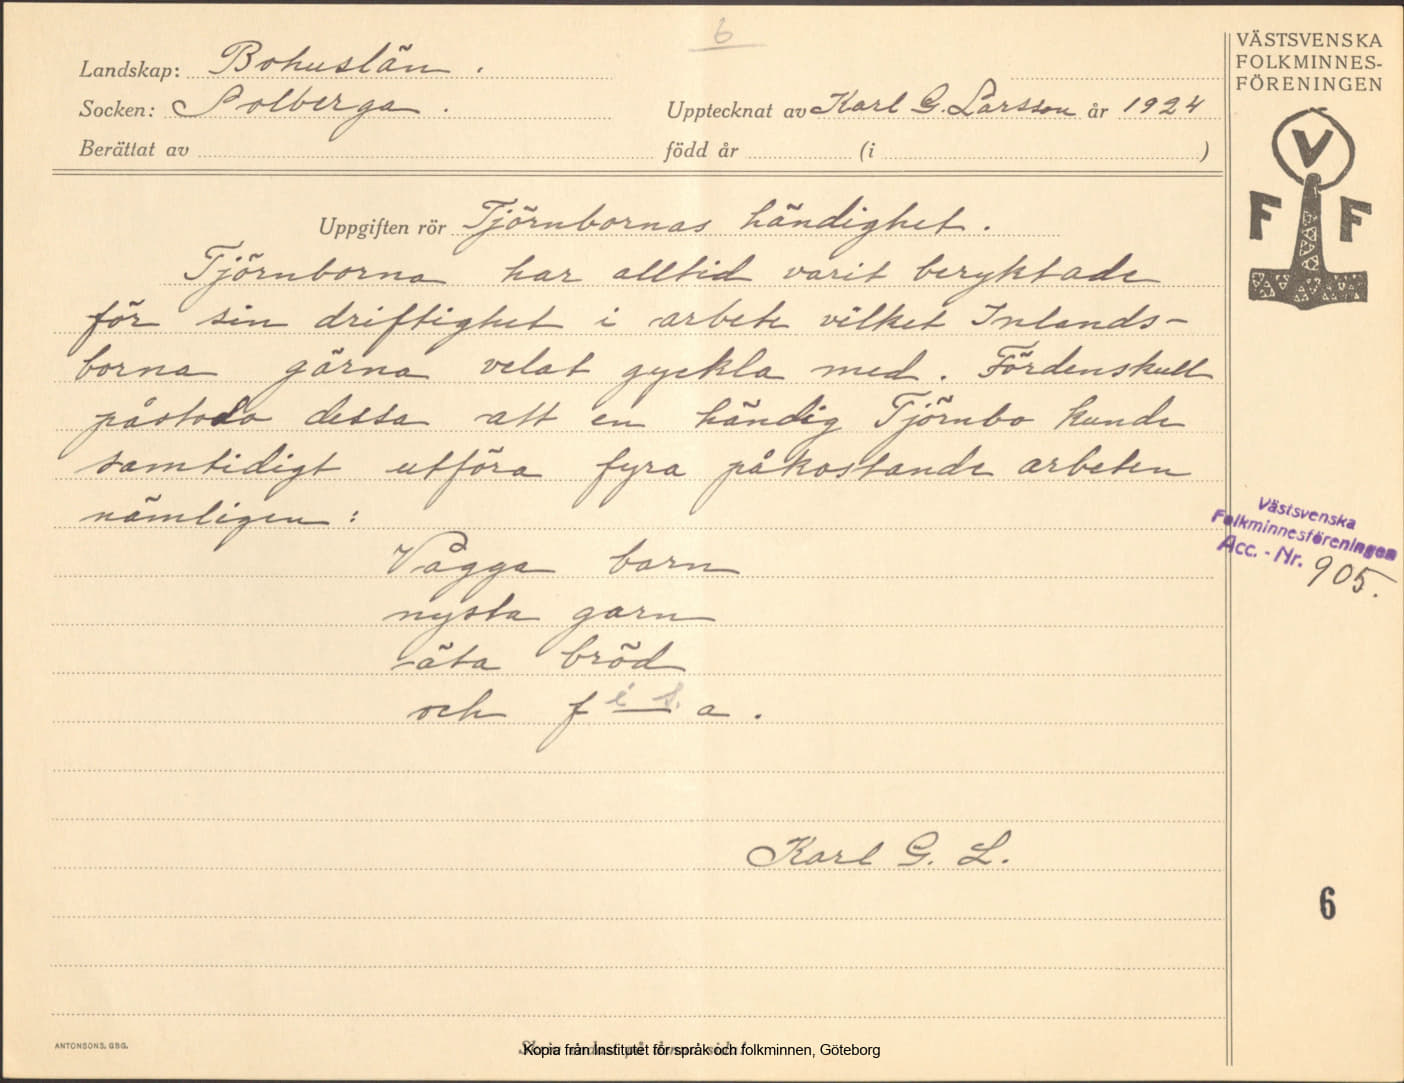 6
VÄSTSVENSKA
FOLKMINNES-
FÖRENINGEN
Landskap: Bohuslän.
Socken: Solberga.
Upptecknat av Karl G. Larsson år 1924
Berättat av född år (i )
V
F F
Uppgiften rör Tjörnbornas händighet.
Tjörnborna har alltid varit beryktade
för sin driftighet i arbete vilket Inlands-
borna gärna velat gyckla med. Fördenskull
påstodo dessa att en händig Tjörnbo kunde
samtidigt utföra fyra påkostande arbeten
nämligen:
Vagga barn
nysta garn
äta bröd
och fisa.
Västsvenska
Folkminnesföreningen
Acc.-Nr. 905.
Karl G. L.
6
ANTONSONS, GBG.
Kopia från Institutet för språk och folkminnen, Göteborg